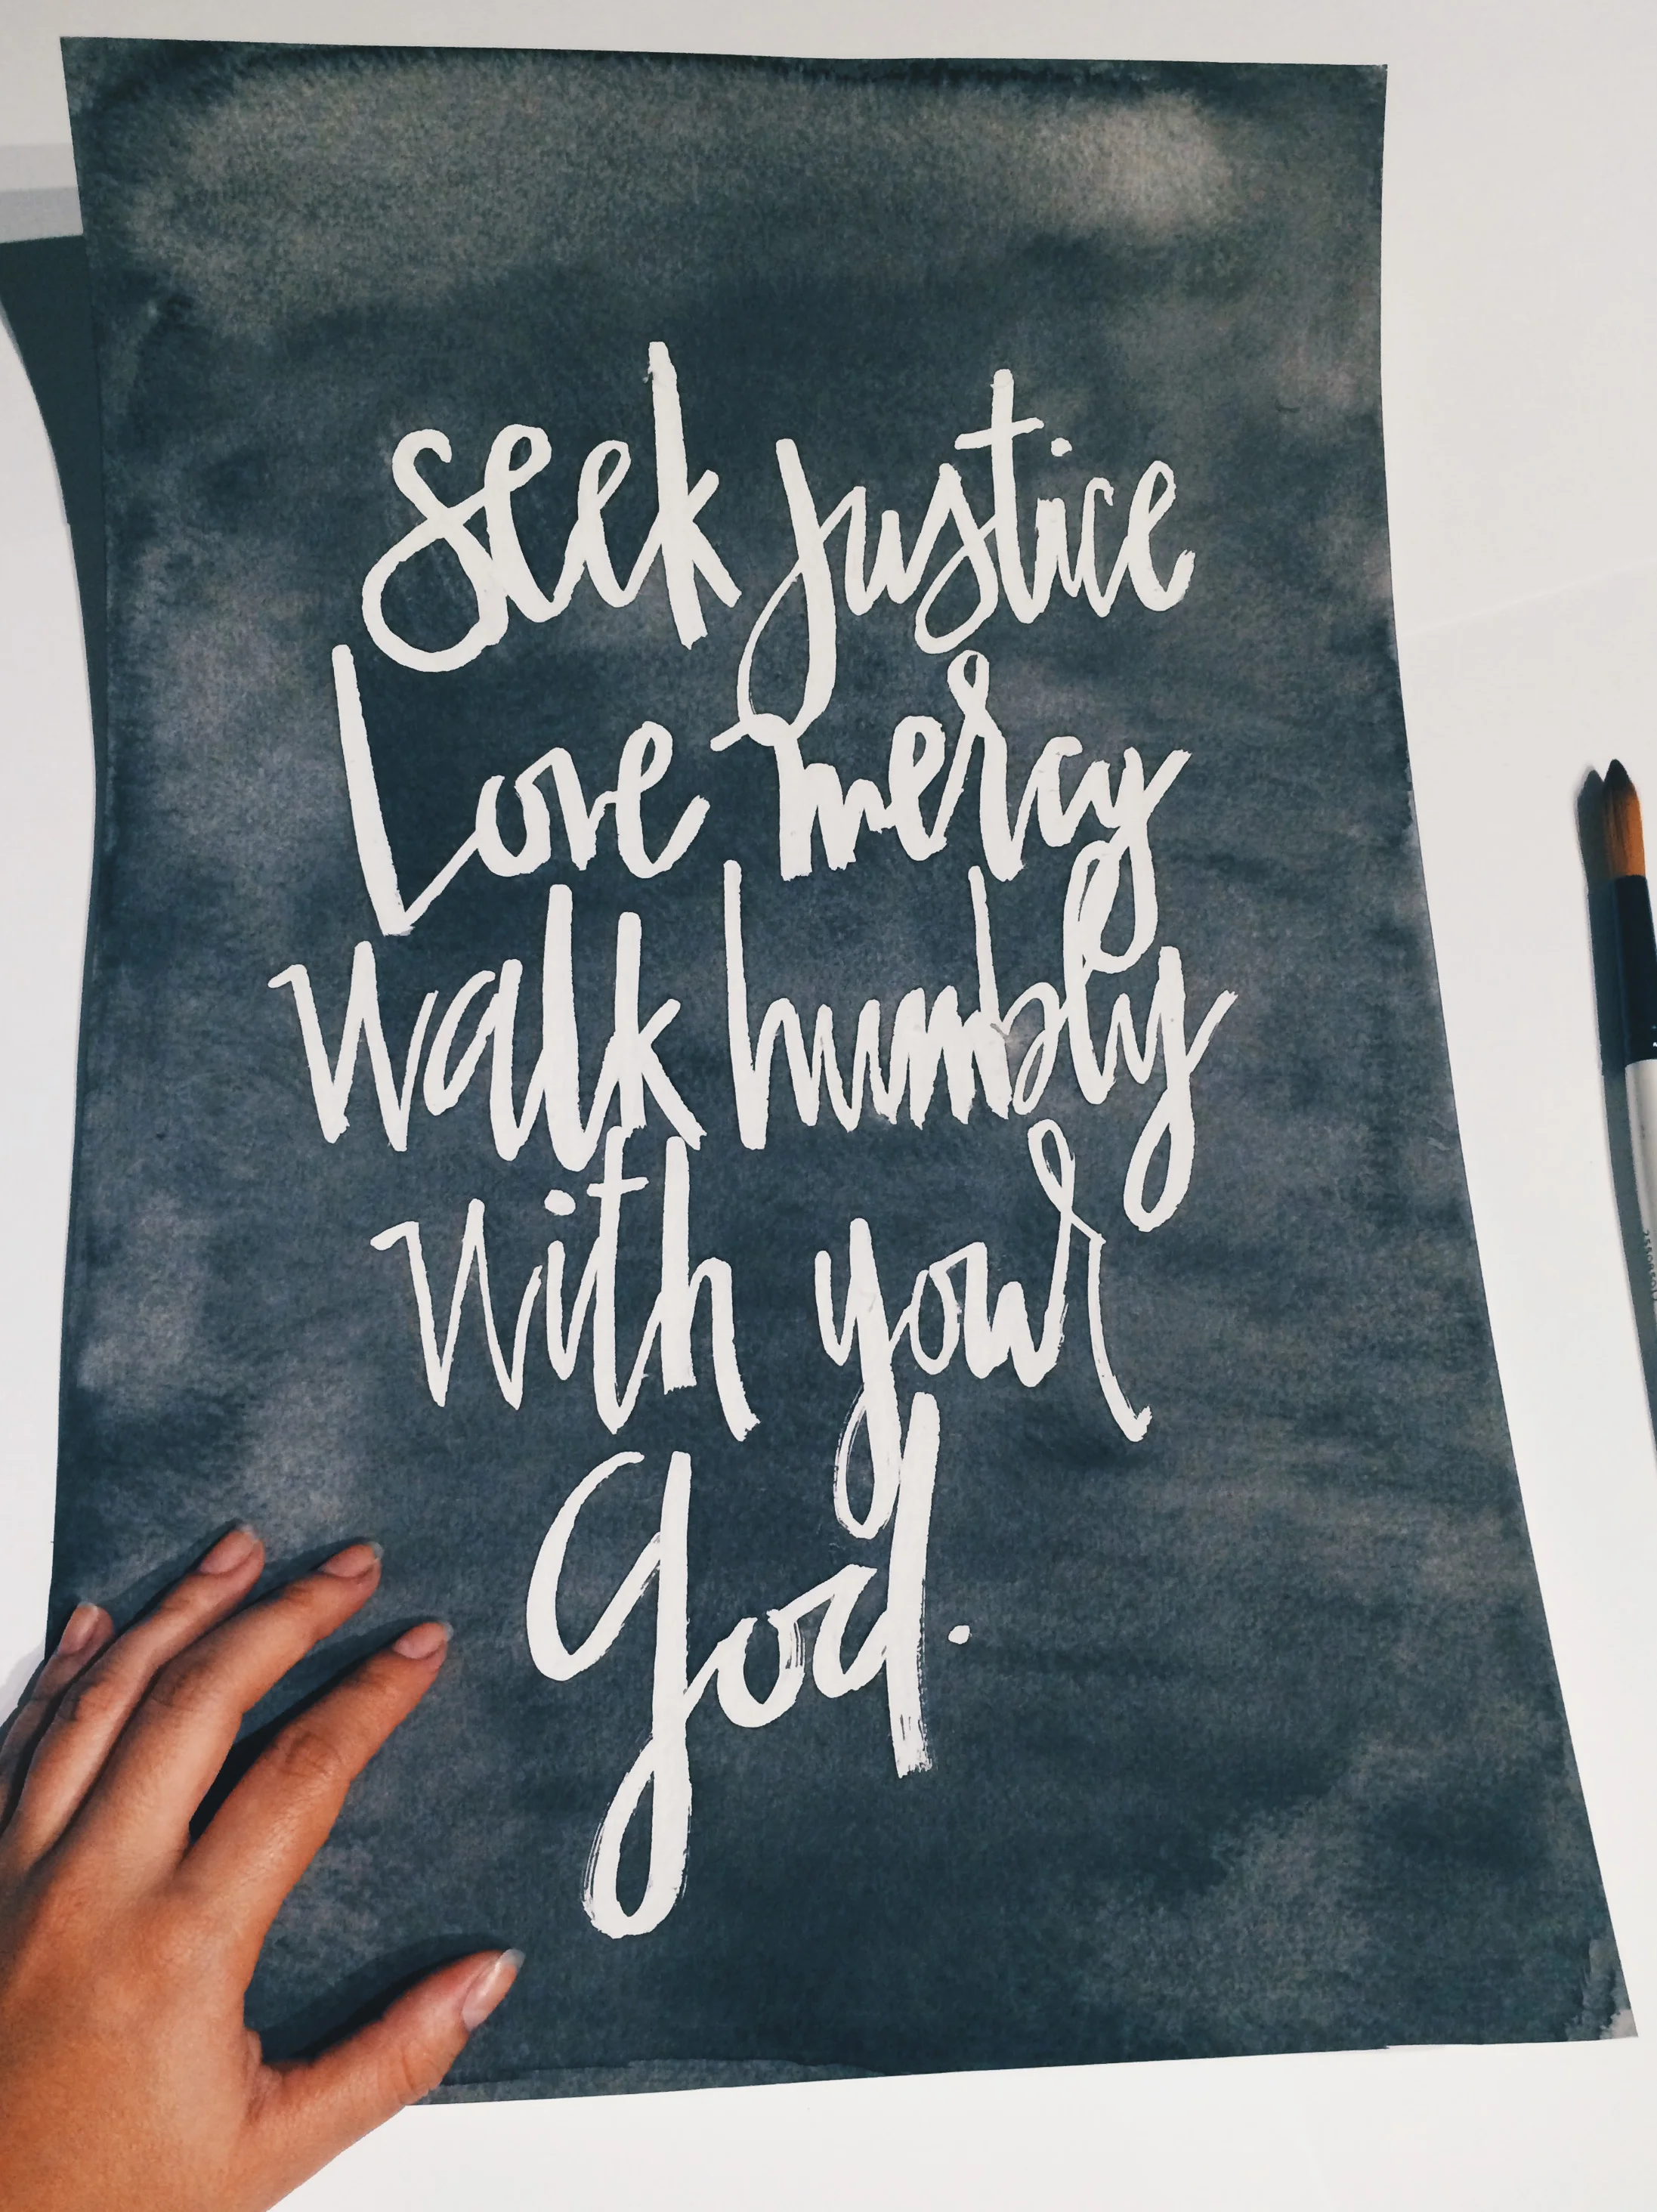 Seek justice
Love mercy
Walk humbly
with your
God.